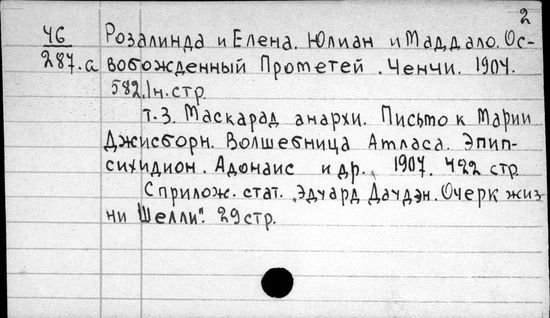 2
Ч6 Розалинда и Елена. Юлиан и Маддало. Ос-
287.а вобожденный Прометей. Ченчи. 1904.
582, 1н. стр.
т. 3. Маскарад анархи. Письмо к Марии
Джисборн. Волшебница Атласа. Эпип-
сихидион. Адонаис и др. 1907. 422 стр
С прилож. стат. „Эдуард Даудэн. Очерк жиз-
ни Шелли". 29 стр.